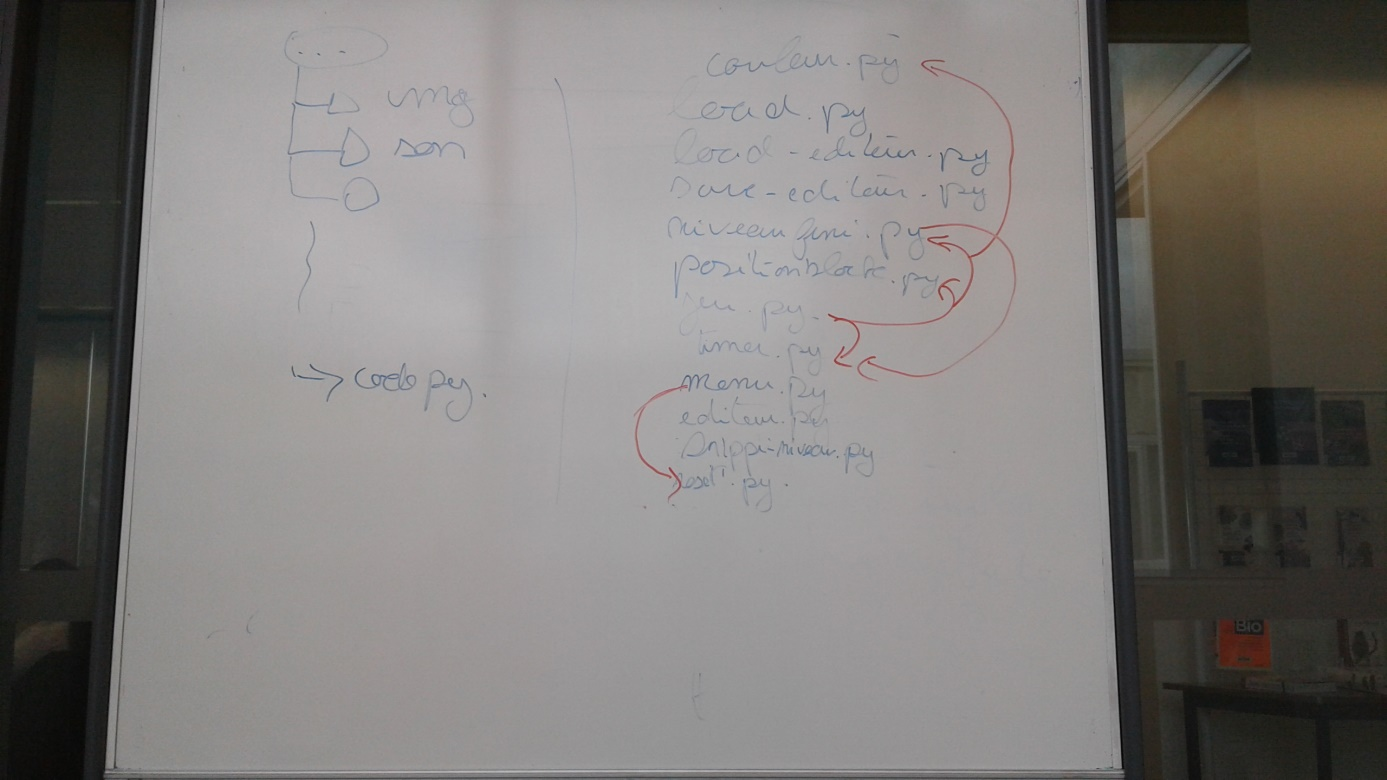 ...
img
son
code py.
couleur.py
load.py
load-editeur.py
save-editeur.py
niveau fini.py
position block.py
jeu.py
timer.py
menu.py
editeur.py
reset.py.
BIO